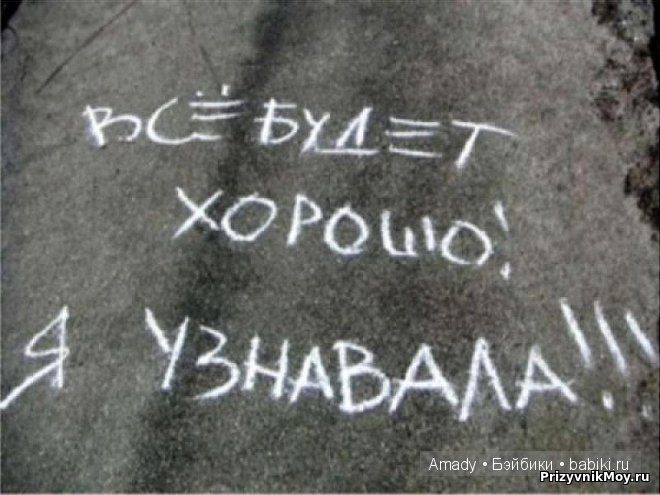 ВСЁ БУДЕТ
ХОРОШО!
Я УЗНАВАЛА!!!
Amady • Бэйбики • babiki.ru
PrizyvnikMoy.ru